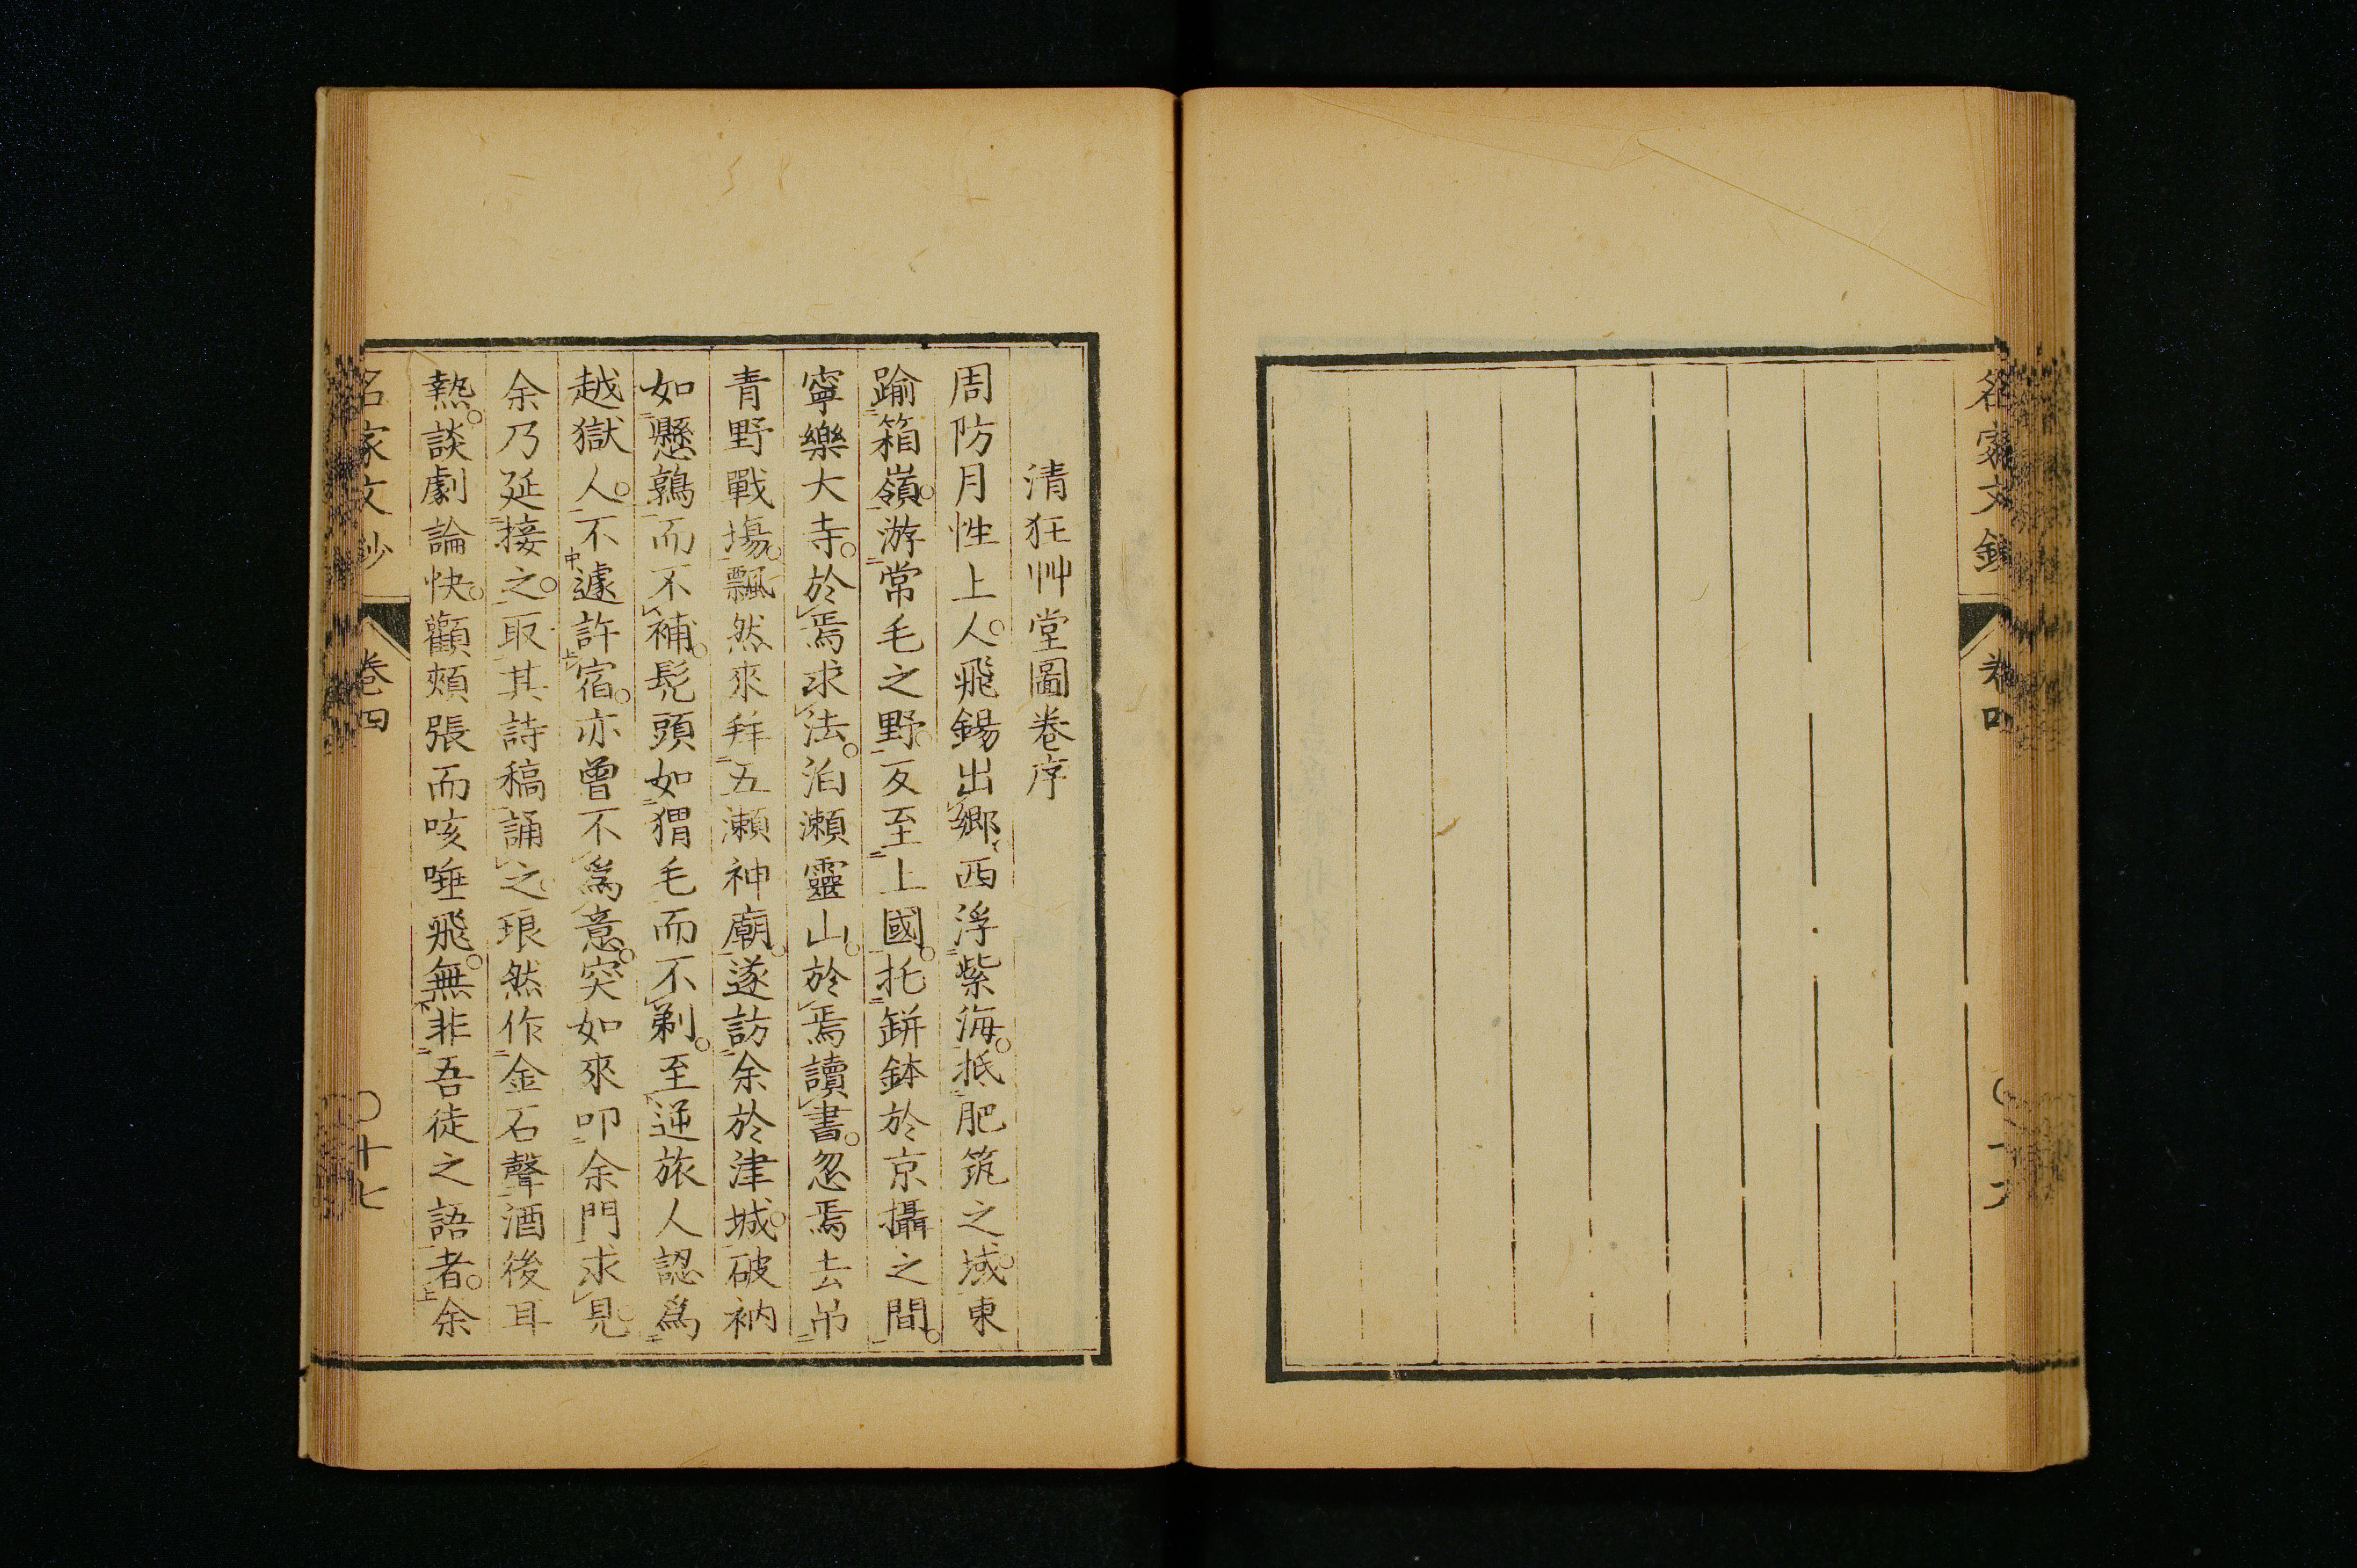 名家文鈔
卷四
清狂艸堂圖卷序
周防月性上人。飛錫出鄉、西浮紫海。抵肥筑之域。東
踰箱嶺。游常毛之野。反至上國。托缾鉢於京攝之間。
寧樂大寺。於焉求法。泊瀨靈山。於焉讀書。忽焉去吊
青野戰塲。飄然來拜五瀨神廟。遂訪余於津城。破衲
如懸鶉而不補。髡頭如猬毛而不剃。至逆旅人認爲
越獄人。不遽許宿。亦曾不爲意。突如來叩余門求見。
余乃延接之。取其詩稿誦之。琅然作金石聲酒後耳
熱。談劇論快。顴頰張而咳唾飛。無非吾徒之語者。余
名家文鈔
卷四
〇十七